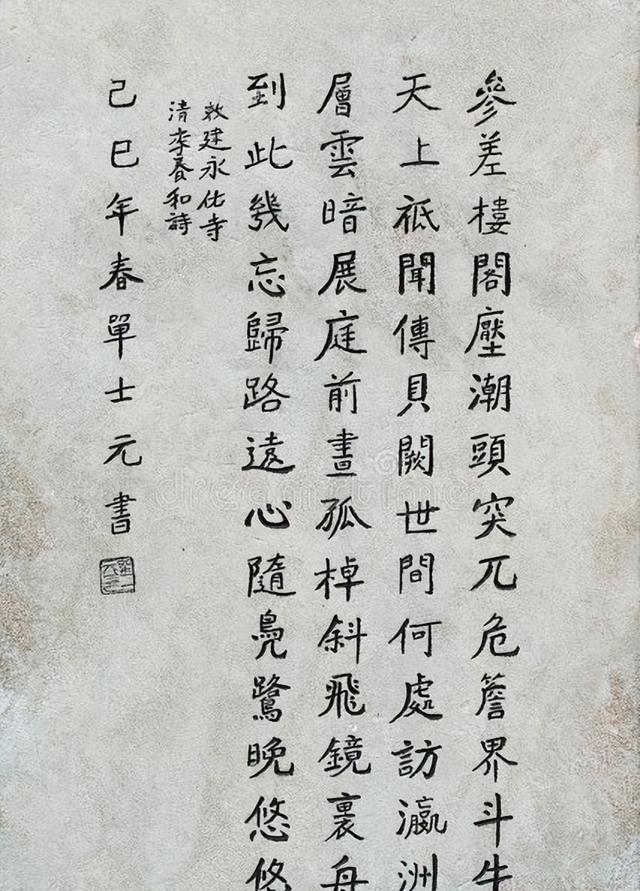 參差樓閣壓潮頭突兀危簷界斗牛
天上祗聞傳貝闕世間何處訪瀛洲
層雲暗展庭前畫孤棹斜飛鏡裏舟
到此幾忘歸路遠心隨鳧鷺晚悠悠
敕建永仕寺
清李春和詩
己巳年春單士元書
dreamstime